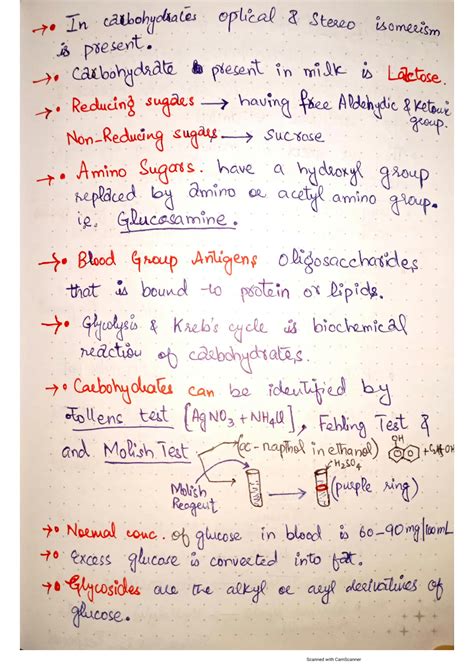 →• In carbohydrates optical & Stereo isomerism
is present.
→• Carbohydrate present in milk is Lactose.
→• Reducing sugars → having free Aldehydic & Ketonic
group.
Non-Reducing sugars → sucrose
→• Amino Sugars. have a hydroxyl group
replaced by amino or acetyl amino group.
ie. Glucosamine.
→• Blood Group Antigens Oligosaccharides
that is bound to protein or lipids.
→• Glycolysis & Kreb's cycle is biochemical
reaction of carbohydrates.
→• Carbohydrates can be identified by
Tollens test [AgNO3 + NH4Cl], Fehling Test &
and Molish Test (α-napthol in ethanol)
OH
H2SO4
Molish
Reagent
(purple ring)
→• Normal conc. of glucose in blood is 60-90mg/100mL
→• excess glucose is converted into fat.
→• Glycosides are the alkyl or aryl derivatives of
glucose.
Scanned with CamScanner